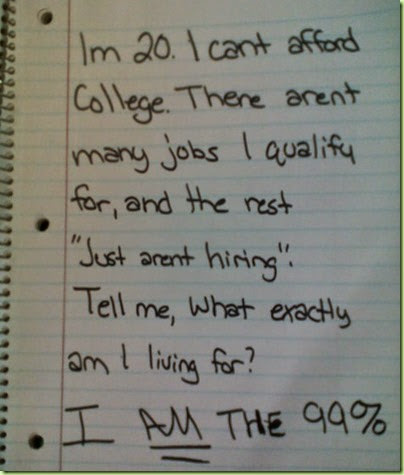 Im 20. I cant afford
College. There arent
many jobs I qualify
for, and the rest
"Just arent hiring".
Tell me, What exactly
am I living for?
I AM THE 99%